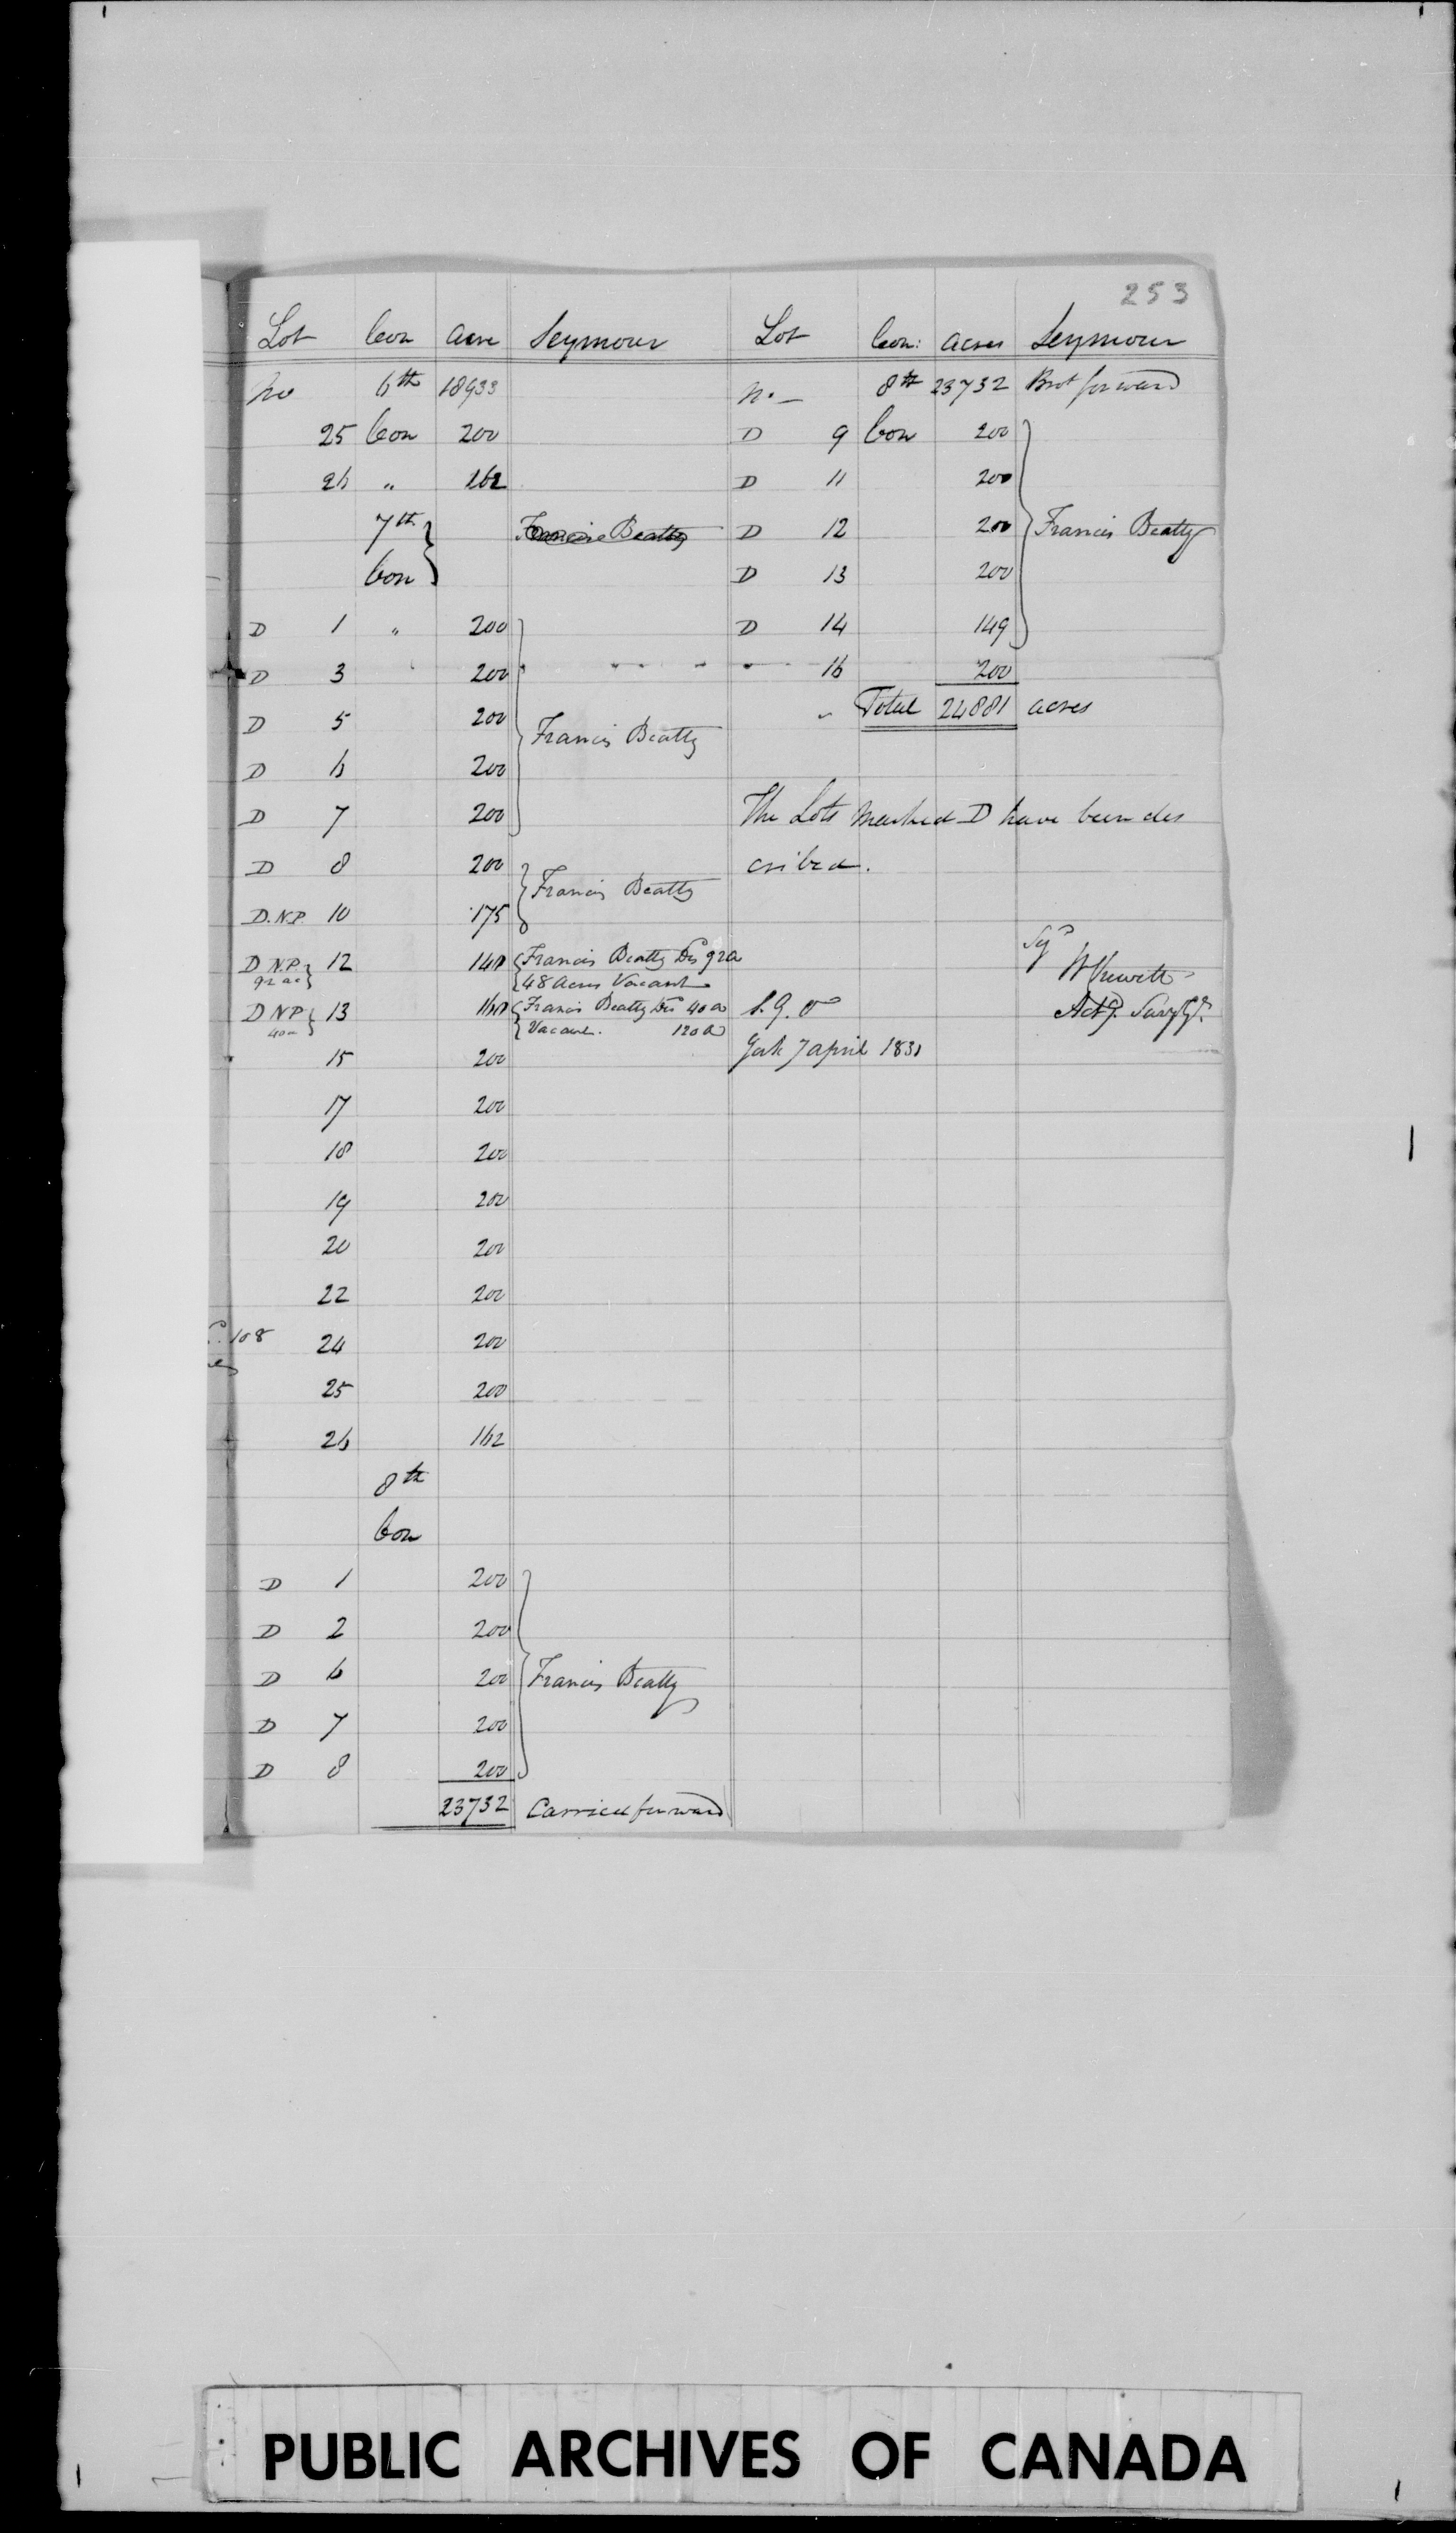 253
Lot Con Acre Seymour
No 6th 18933
25 Con 200
26 " 162
7th Francis Beatty
Con
D 1 " 200
D 3 200
D 5 200
Francis Beatty
D 6 200
D 7 200
D 8 200
Francis Beatty
D.N.P. 10 175
D N.P. 12 140 Francis Beatty Des 92a
92 ac 48 Acres Vacant
D N P 13 160 Francis Beatty Des 40 a
40a Vacant. 120 a
15 200
17 200
18 200
19 200
20 200
22 200
108 24 200
25 200
26 162
8th
Con
D 1 200
D 2 200
D 6 200 Francis Beatty
D 7 200
D 8 200
23732 Carried forward
Lot Con: Acres Seymour
No— 8th 23732 Brot forward
D 9 Con 200
D 11 200
D 12 200 Francis Beatty
D 13 200
D 14 149
16 200
" Total 24881 acres
The Lots marked D have been des
cribed.
Sgd
W Chewett
S. G. O Actg. Survr Gl.
York 7 april 1831
PUBLIC ARCHIVES OF CANADA